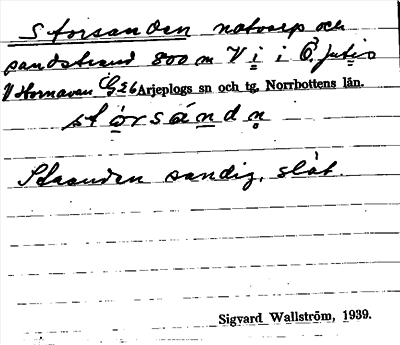 Storsanden notvarp och
sandstrand 800 m V i i Ö. Jutis
V Hornavan G26 Arjeplogs sn och tg, Norrbottens län.
stórsándn
Stranden sandig, slät.
Sigvard Wallström, 1939.